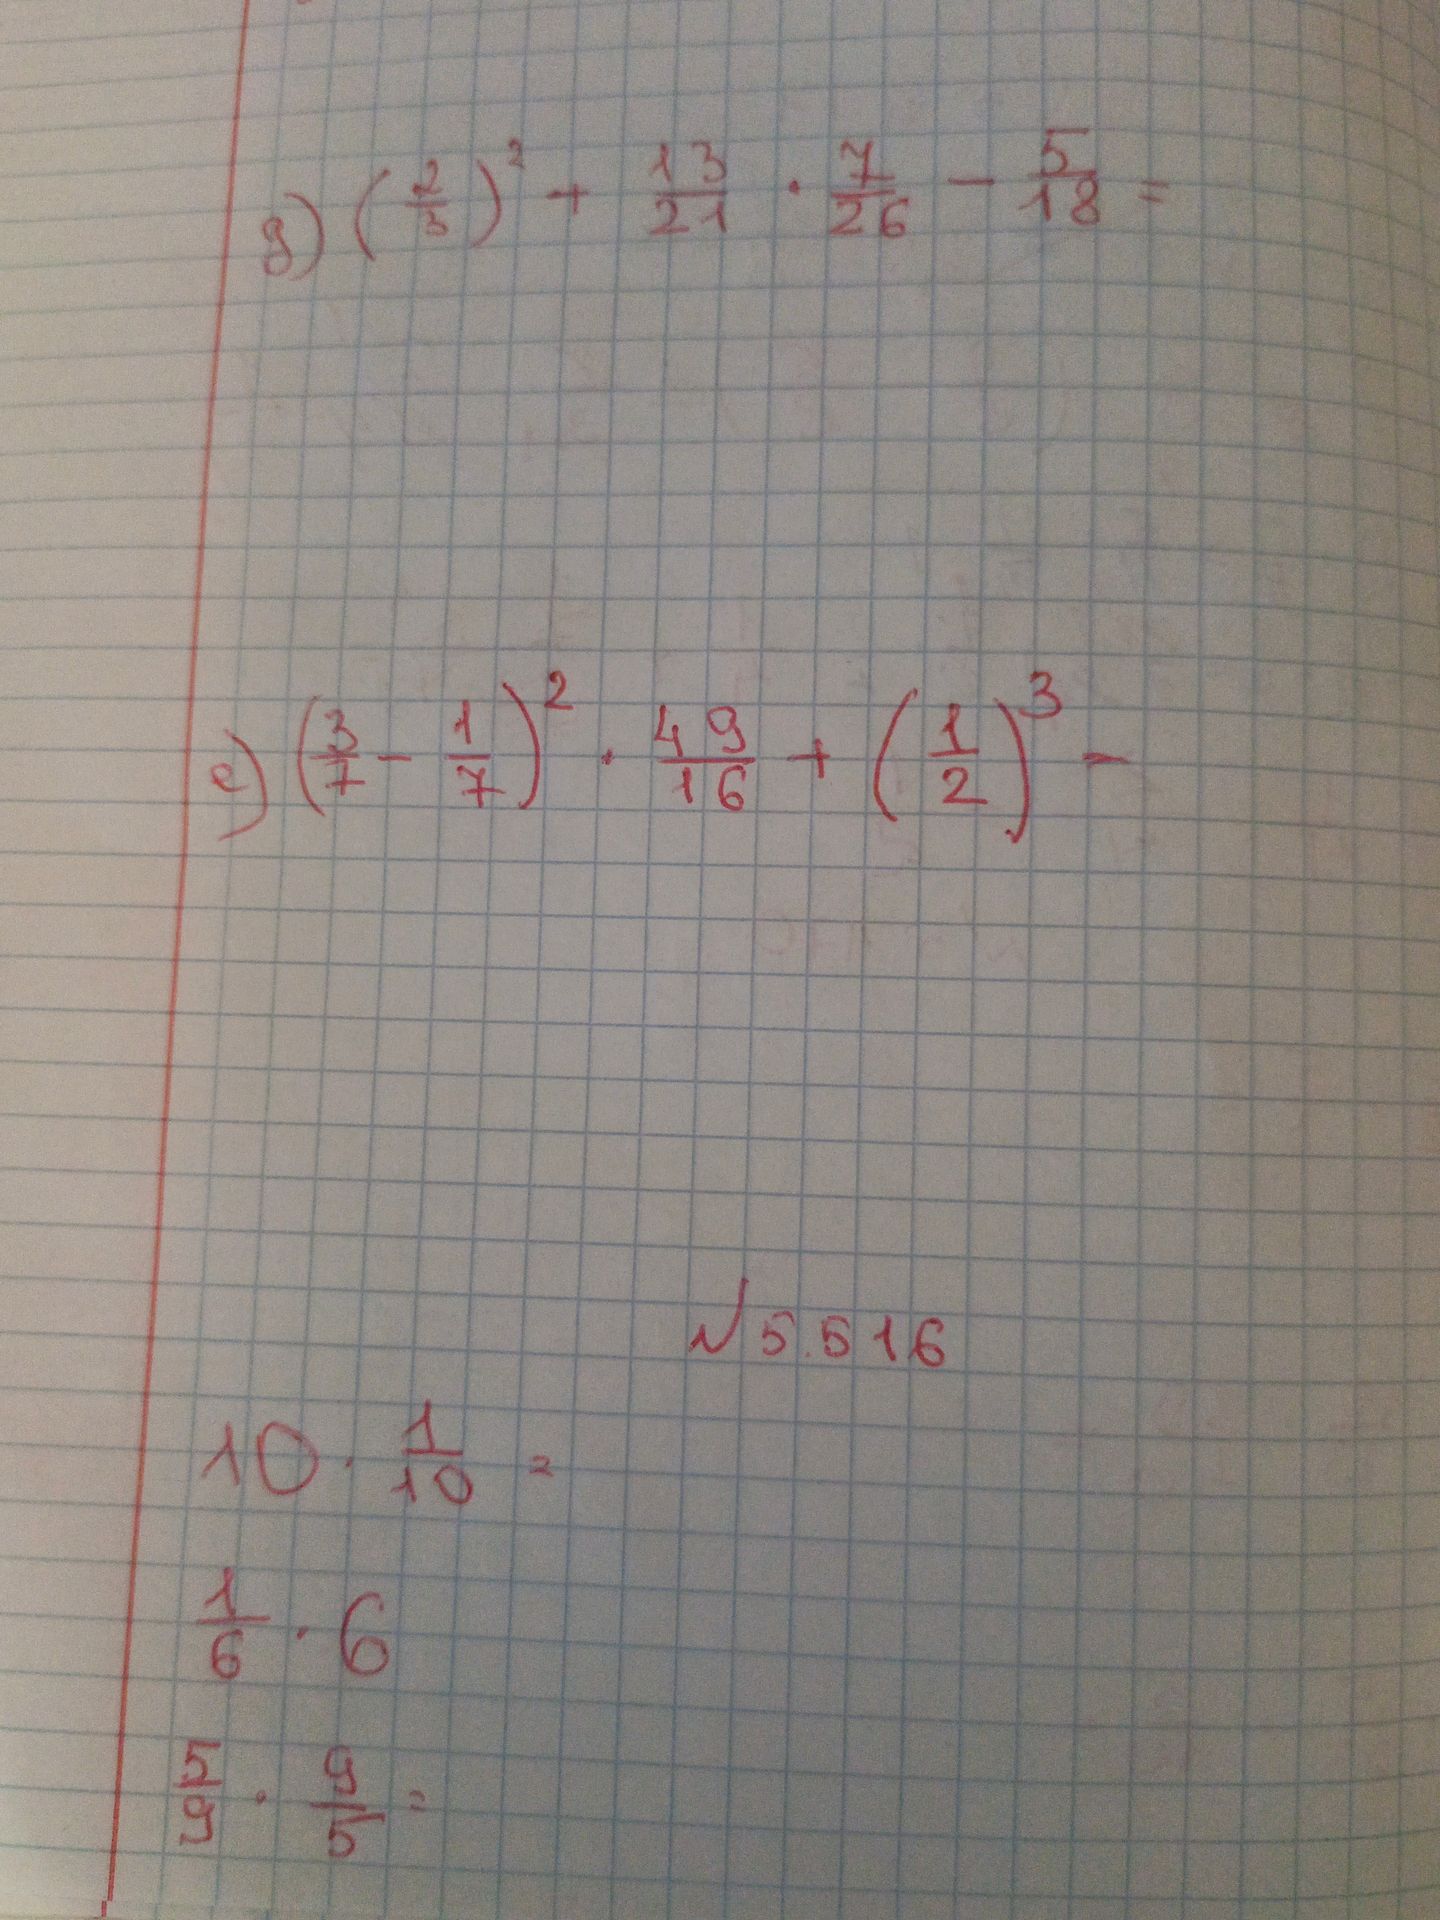 д) (2/3)² + 13/21 · 7/26 − 5/18 =
е) (3/7 − 1/7)² · 49/16 + (1/2)³ −
№5.516
10 · 1/10 =
1/6 · 6
5/9 · 9/5 =